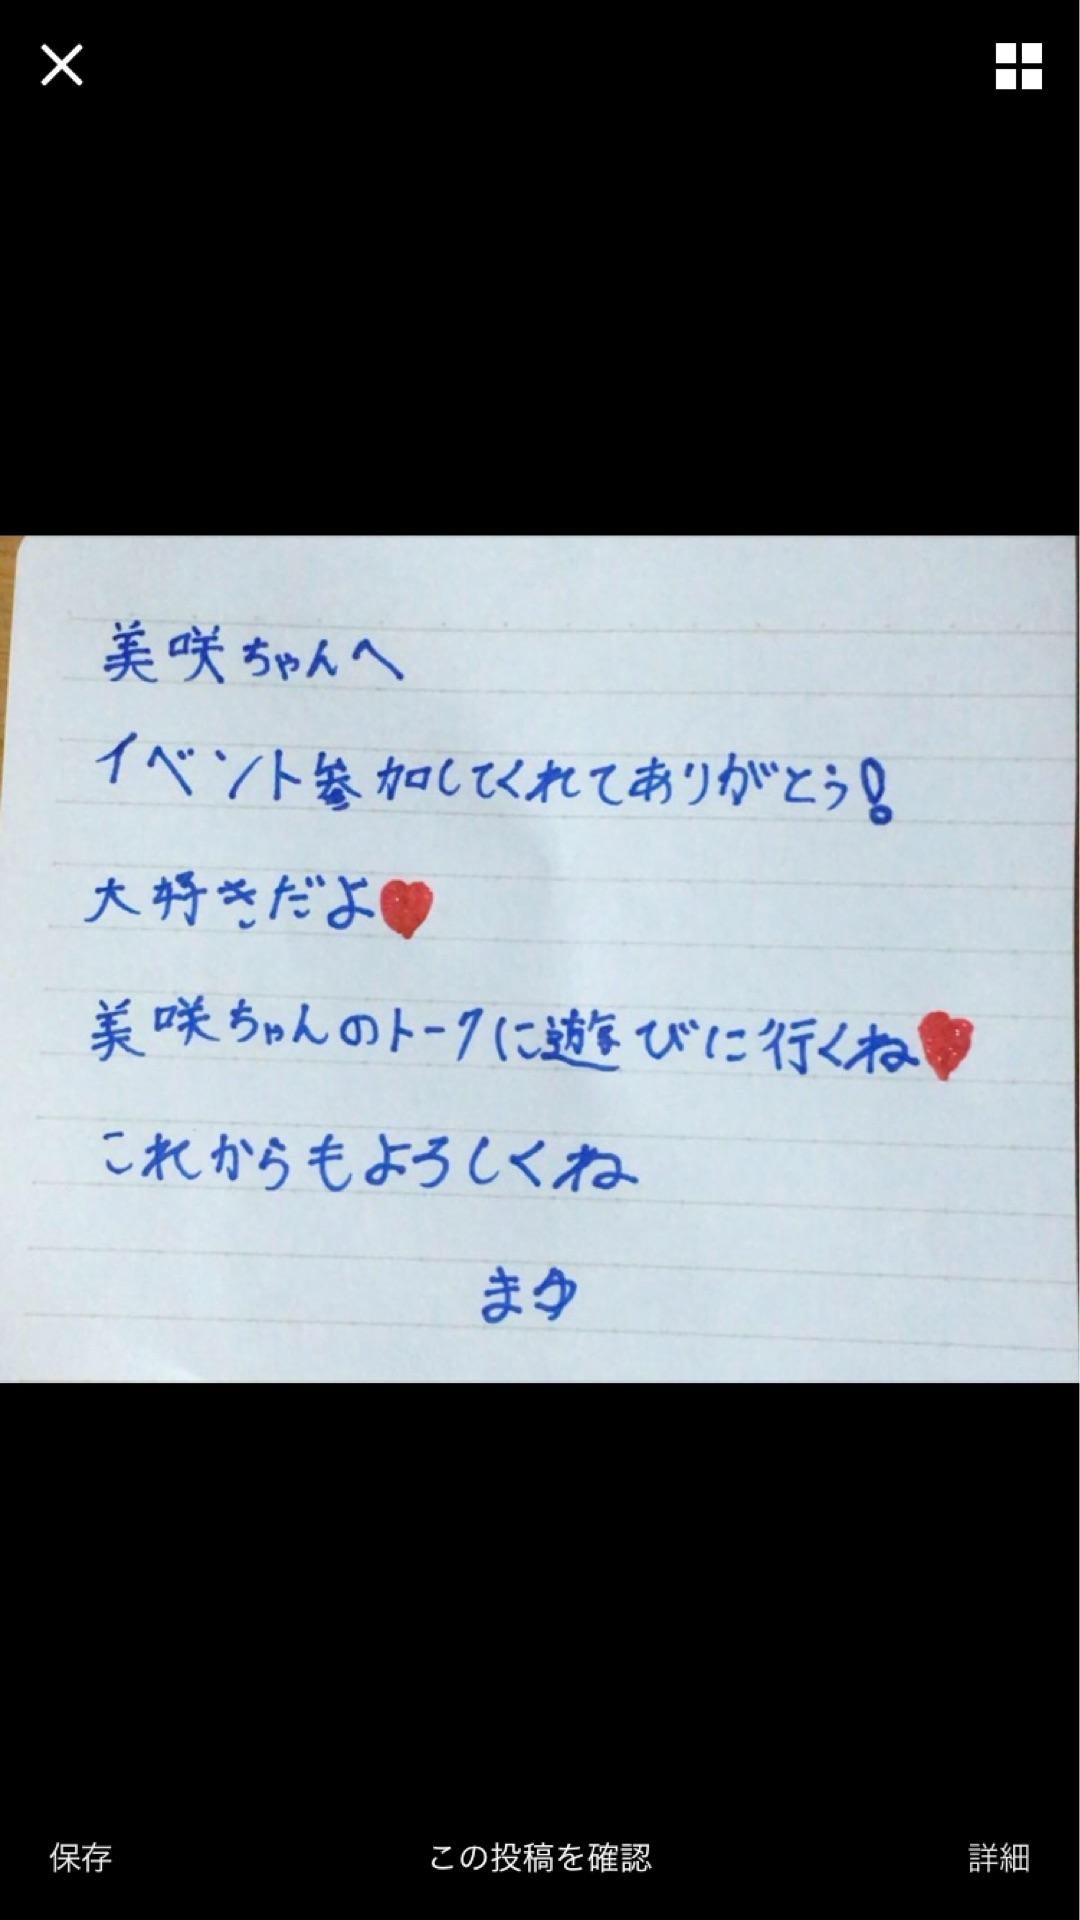 美咲ちゃんへ
イベント参加してくれてありがとう!
大好きだよ❤
美咲ちゃんのトークに遊びに行くね❤
これからもよろしくね
まゆ
保存
この投稿を確認
詳細